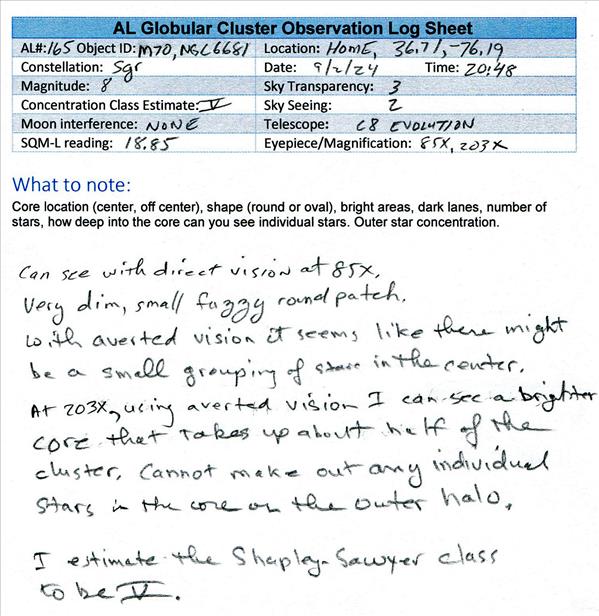 AL Globular Cluster Observation Log Sheet
AL#: 165 Object ID: M70, NGC6681 Location: HOME, 36.71, -76.19
Constellation: Sgr Date: 9/2/24 Time: 20:48
Magnitude: 8 Sky Transparency: 3
Concentration Class Estimate: V Sky Seeing: 2
Moon interference: NONE Telescope: C8 EVOLUTION
SQM-L reading: 18.85 Eyepiece/Magnification: 85X, 203X
What to note:
Core location (center, off center), shape (round or oval), bright areas, dark lanes, number of
stars, how deep into the core can you see individual stars. Outer star concentration.
Can see with direct vision at 85X.
Very dim, small fuzzy round patch.
With averted vision it seems like there might
be a small grouping of stars in the center.
At 203X, using averted vision I can see a brighter
core that takes up about half of the
cluster. Cannot make out any individual
stars in the core or the outer halo.
I estimate the Shapley-Sawyer class
to be V.